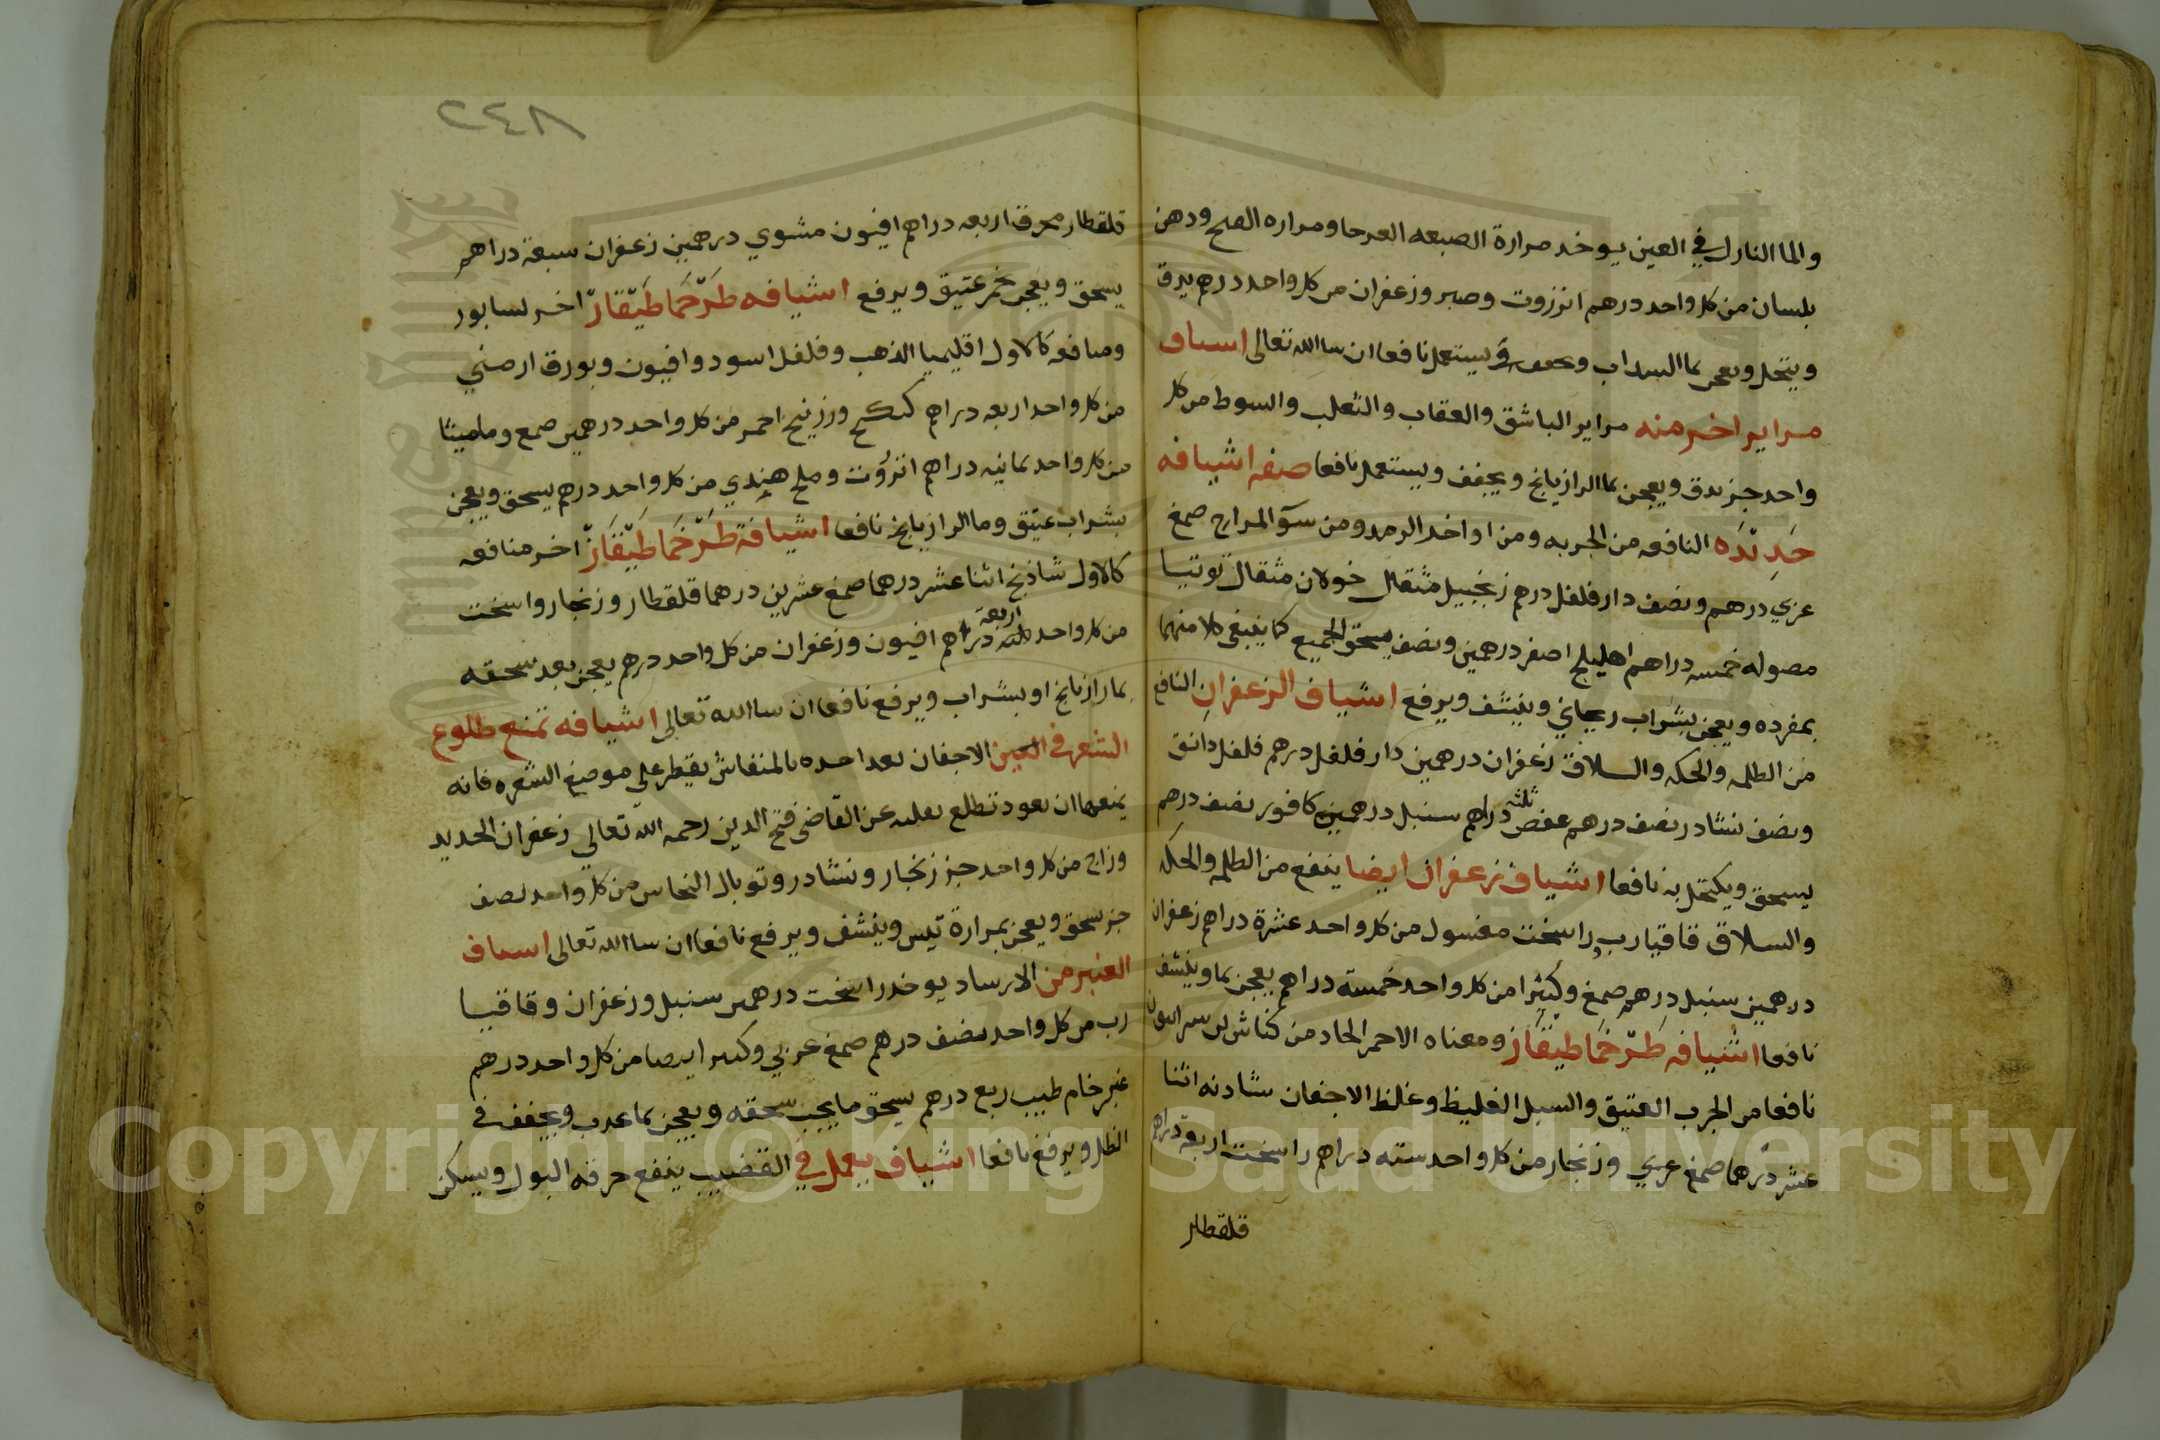 والما النازل في العين يوخد مرارة الضبعه العرجا ومراره القبج ودهن
بلسان من كل واحد درهم انزروت وصبر وزعفران من كل واحد درهم يدق
وينخل ويعجن بما السداب ويجفف ويستعمل نافعا ان سا الله تعالى اسياف
مراير اخر منه مراير الباشق والعقاب والثعلب والسوط من كل
واحد جز يدق ويعجن بما الرازيانج ويجفف ويستعمل نافعا صفه اشيافه
حَدِيّدَه النافعه من الجربه ومن اواخر الرمد ومن سوَ المزاج صمغ
عربي درهم ونصف دار فلفل درهم زنجبيل مثقال خولان مثقال توتيا
مصوله خمسه دراهم اهليلج اصفر درهمين ونصف يسحق الجميع كما ينبغي كلا منهما
بمفرده ويعجن بشراب ريحاني وينشف ويرفع اشياف الزعفران النافع
من الظلمه والحكه والسلاق زعفران درهمين دار فلفل درهم فلفل دانق
ونصف نشادر نصف درهم عفص ثلثه دراهم سنبل درهمين كافور نصف درهم
يسحق ويكتحل به نافعا اشياف زعفران ايضا ينفع من الظلمه والحكه
والسلاق قاقيا رب راسخت مغسول من كل واحد عشرة دراهم زعفران
درهمين سنبل درهم صمغ وكثيرا من كل واحد خمسة دراهم يعجن بما وينشف
نافعا اشيافه طَرّخَمَا طَيّقَارّ ومعناه الاحمر الحاد من كناش بن سرابيون
نافعا من الجرب العتيق والسبل الغليظ وغلظ الاجفان شادنه اثنا
عشر درهما صمغ عربي وزنجار من كل واحد سته دراهم راسخت اربعة دراهم
قلقطار
٢٤٨
قلقطار محرق اربعه دراهم افيون مشوي درهمين زعفران سبعة دراهم
يسحق ويعجن بخمر عتيق ويرفع اشيافه طَرّخَمَا طَيّقَارّ اخر لسابور
ومنافعه كالاول اقليميا الذهب وفلفل اسود وافيون وبورق ارمني
من كل واحد اربعه دراهم وزرنيخ احمر من كل واحد درهمين صمغ وماميثا
من كل واحد ثمانيه دراهم انزرُوت وملح هندي من كل واحد درهم يسحق ويعجن
بشراب عتيق وما الرازيانج نافعا اشيافة طَرّخَمَا طَيّقَارّ اخر منافعه
كالاول شاذنج اثنا عشر درهما صمغ عشرين درهما قلقطار وزنجار واسخت
من كل واحد اربعة دراهم افيون وزعفران من كل واحد درهم يعجن بعد سحقه
بما رازيانج او بشراب ويرفع نافعا ان سا الله تعالى اشيافه تمنع طلوع
الشعر في العين الاجفان بعد اخده بالمنقاش يقطر على موضع الشعره فانه
يمنعها ان تعود تطلع نقلته عن القاضي فتح الدين رحمه الله تعالى زعفران الحديد
وزاج من كل واحد جز زنجار ونشادر وتوبال النحاس من كل واحد نصف
جز يسحق ويعجن بمرارة تيس وينشف ويرفع نافعا ان سا الله تعالى اسياف
العنبر من الارساد يوخد راسخت درهمين سنبل وزعفران وقاقيا
رب من كل واحد نصف درهم صمغ عربي وكثيرا بيضا من كل واحد درهم
عنبر خام طيب ربع درهم يسحق ما يجب سحقه ويعجن بما عدب ويجفف في
الظل ويرفع نافعا اشياف يعمل في القضيب ينفع حرقه البول ويسكن
Copyright © King Saud University